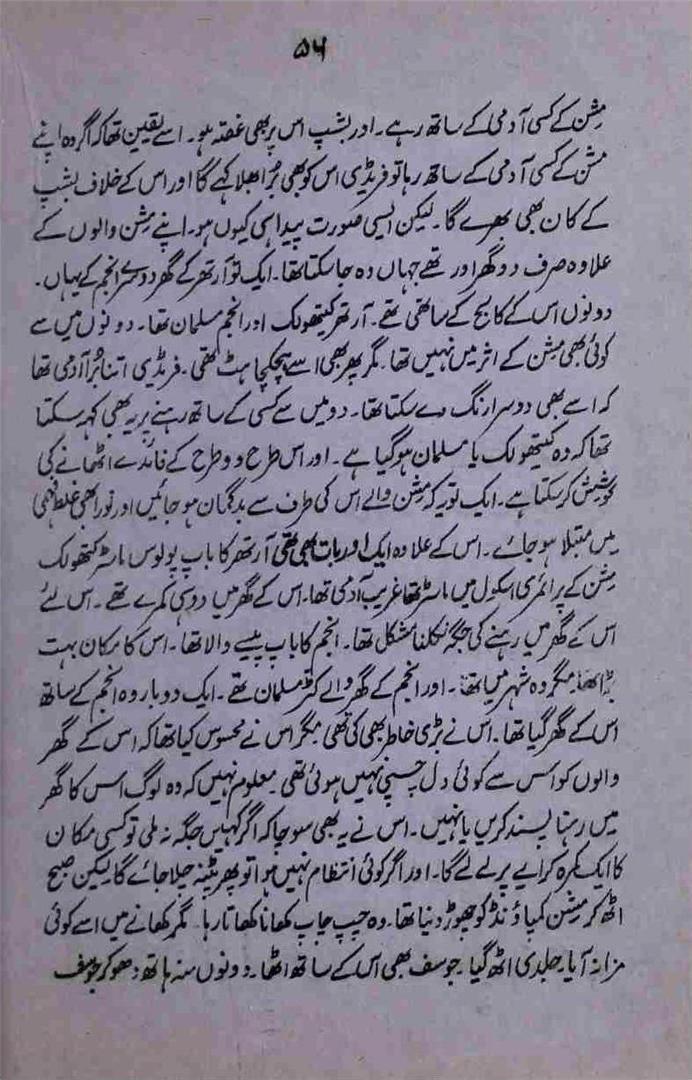 ۵۶
مشن کے کسی آدمی کے ساتھ رہے۔ اور بشپ اس پر بھی غصہ ہو۔ اسے یقین تھا کہ اگر وہ اپنے
مشن کے کسی آدمی کے ساتھ رہا تو فریڈی اس کو بھی بُرا بھلا کہے گا اور اس کے خلاف بشپ
کے کان بھی بھرے گا۔ لیکن ایسی صورت پیدا ہی کیوں ہو۔ اپنے مشن والوں کے
علاوہ صرف دو گھر اور تھے جہاں وہ جا سکتا تھا۔ ایک تو آرتھر کے گھر دوسرے انجم کے یہاں۔
دونوں اس کے کالج کے ساتھی تھے۔ آرتھر کیتھولک اور انجم مسلمان تھا۔ دونوں میں سے
کوئی بھی مشن کے اثر میں نہیں تھا۔ مگر پھر بھی اسے ہچکچاہٹ تھی۔ فریڈی اتنا بُرا آدمی تھا
کہ اسے بھی دوسرا رنگ دے سکتا تھا۔ دو میں سے کسی کے ساتھ رہنے پر یہ بھی کہہ سکتا
تھا کہ وہ کیتھولک یا مسلمان ہو گیا ہے۔ اور اس طرح دو طرح کے فائدے اٹھانے کی
کوشش کر سکتا ہے۔ ایک تو یہ کہ مشن والے اس کی طرف سے بدگمان ہو جائیں اور نورا بھی غلط فہمی
میں مبتلا ہو جائے۔ اس کے علاوہ ایک اور بات بھی تھی آرتھر کا باپ پولوس ماسٹر کتھولک
مشن کے پرائمری اسکول میں ماسٹر تھا غریب آدمی تھا۔ اس کے گھر میں دو ہی کمرے تھے۔ اس لئے
اس کے گھر میں رہنے کی جگہ نکلنا مشکل تھا۔ انجم کا باپ پیسے والا تھا۔ اس کا مکان بہت
بڑا تھا۔ مگر وہ شہر میں تھا۔ اور انجم کے گھر والے کٹر مسلمان تھے۔ ایک دو بار وہ انجم کے ساتھ
اس کے گھر گیا تھا۔ اس نے بڑی خاطر بھی کی تھی مگر اس نے محسوس کیا تھا کہ اس کے گھر
والوں کو اس سے کوئی دل چسپی نہیں ہوئی تھی۔ معلوم نہیں کہ وہ لوگ اس کا گھر
میں رہنا پسند کریں یا نہیں۔ اس نے یہ بھی سوچا کہ اگر کہیں جگہ نہ ملی تو کسی مکان
کا ایک کمرہ کرایے پر لے لے گا۔ اور اگر کوئی انتظام نہیں ہوا تو پھر پٹنہ چلا جائے گا لیکن صبح
اٹھ کر مشن کمپاؤنڈ کو چھوڑ دینا تھا۔ وہ چپ چاپ کھانا کھاتا رہا۔ مگر کھانے میں اسے کوئی
مزا نہ آیا۔ جلدی اٹھ گیا۔ جوسف بھی اس کے ساتھ اٹھا۔ دونوں منہ ہاتھ دھو کر جوسف